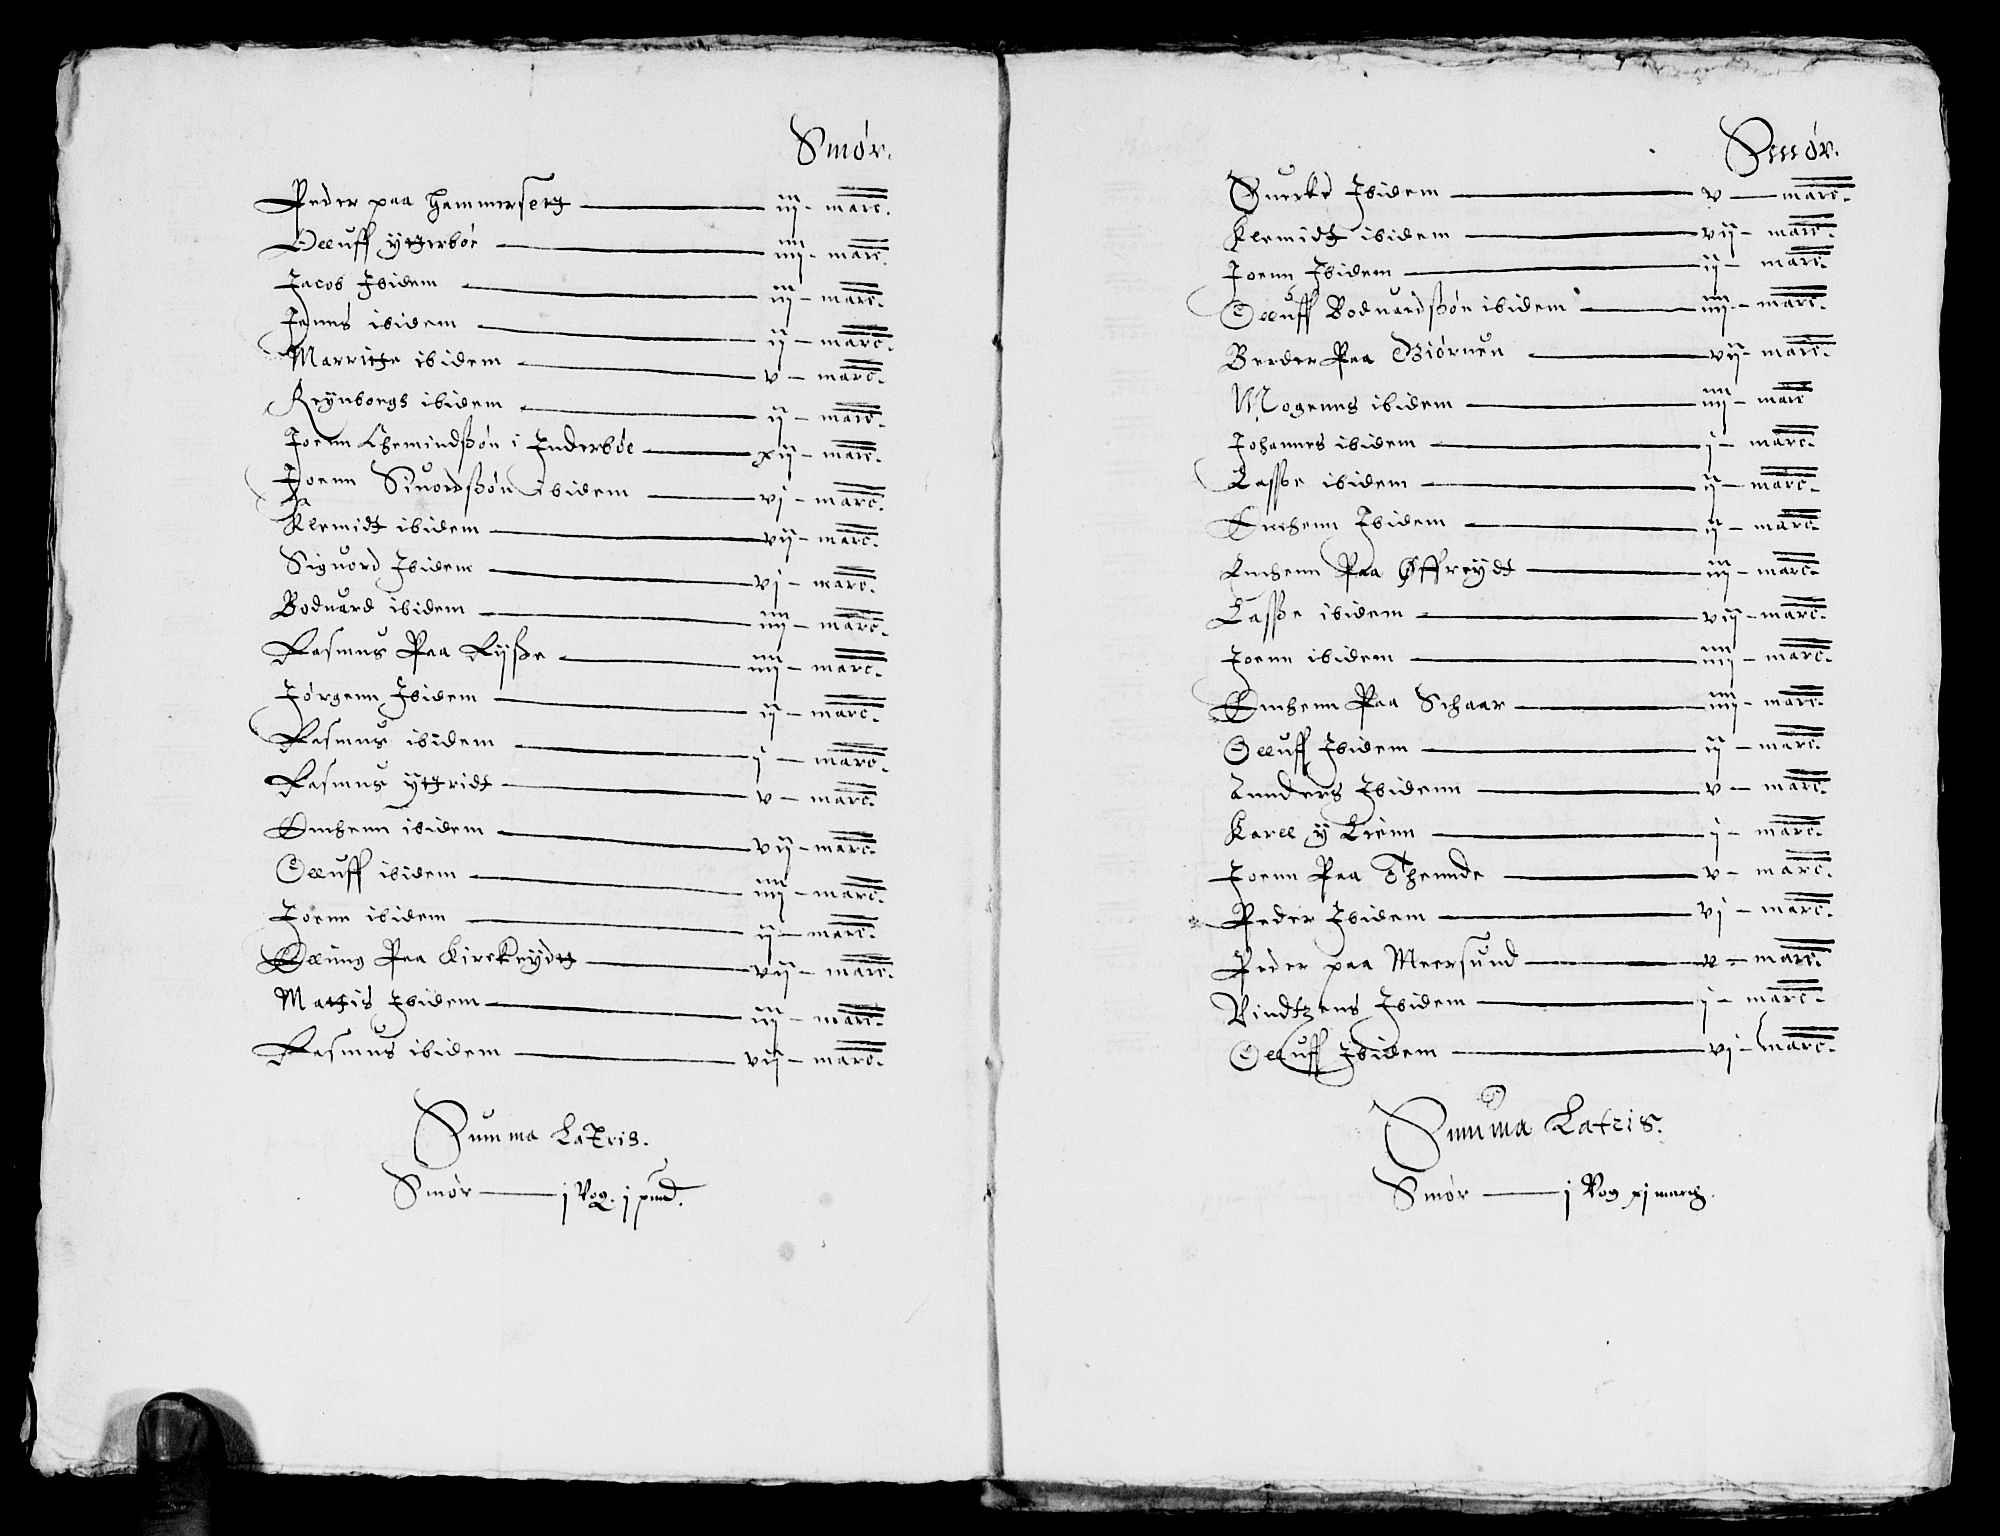 Smør.
Peder paa Hammersetg iij - marc.
Olluff ytterbøe iiij - marc.
Jacob Ibidem iij - marc.
Jenns ibidem ij - marc.
Marritte ibidem v - marc.
Reynborgs ibidem ij - marc.
Joenn Chemindßøn i Inderbøe xij - marc.
Joenn Siuordßøn ibidem vj - marc.
Klemidt ibidem vij - marc.
Siguord Ibidem vj - marc.
Boduard ibidem iiij - marc.
Rasmus Paa Rijße iiij - marc.
Jørgenn Ibidem ij - marc.
Rasmus ibidem j - marc.
Rasmus yttridt v - marc.
Enchenn ibidem vij - marc.
Olluff ibidem iiij - marc.
Joenn ibidem ij - marc.
Ellling Paa Kirckeydtt vij - marc.
Mattis Ibidem iij - marc.
Rasmus ibidem vij - marc.
Summa Latris.
Smør j Vog. j pund.
Smør.
Suerke Ibidem v - marc.
Klemidt ibidem vij - marc.
Joenn Ibidem ij - marc.
Olluff Boduardßøn ibidem iiij - marc.
Berder Paa Biørnen vij - marc.
Mogenns ibidem iiij - marc
Johannes ibidem j - marc.
Laßße ibidem ij - marc.
Enchenn Ibidem ij - marc.
Enchenn Paa Øffreydt iij - marc.
Laßße ibidem vij - marc.
Joenn ibidem iiij - marc.
Enchenn Paa Schaar iiij - marc.
Olluff Ibidem ij - marc.
Annders Ibidenn v - marc.
Karll y Lienn j - marc.
Joenn Paa Thennde v - marc.
Peder Ibidem vj - marc.
Peder paa Meersund v - marc.
Vindtzens Ibidem j - marc.
Olluff Ibidem vj - marc.
Summa Latris.
Smør j Vog xj marcg.